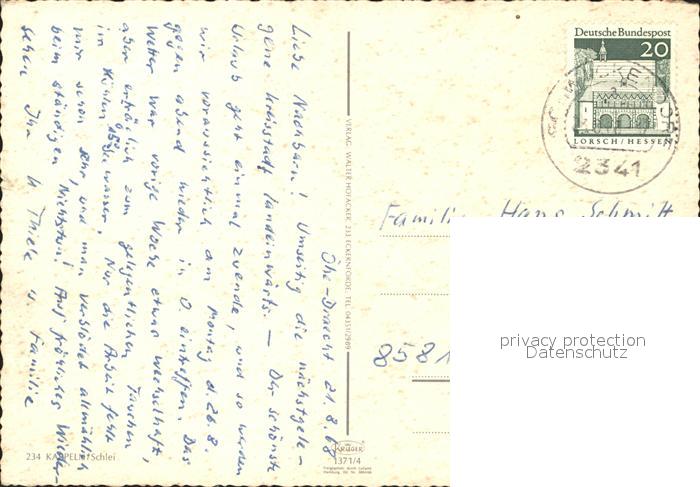 Öhe-Draecht 21.8.68
Liebe Nachbarn! Umseitig die nächstgele-
gene Kreisstadt landeinwärts. — Der schönste
Urlaub geht einmal zuende, und so werden
wir voraussichtlich am Montag d. 26.8.
gegen abend wieder in O. eintreffen. Das
Wetter war vorige Woche etwas wechselhaft,
aber erträglich zum gelegentlichen Tauchen
im kühlen Wasser. Nur die Arbeit fehlt
mir schon sehr, und man verblödet allmählich
beim ständigen Nichtstun! Auf fröhliches Wieder-
sehen Ihr H Thiele u. Familie
234 KAPPELN/Schlei
VERLAG: WALTER HOFACKER, 233 ECKERNFÖRDE, TEL. 04351/2989
KRÜGER
1371/4
Deutsche Bundespost
20
LORSCH/HESSEN
2341
Familie Hans Schmitt
8581
privacy protection
Datenschutz